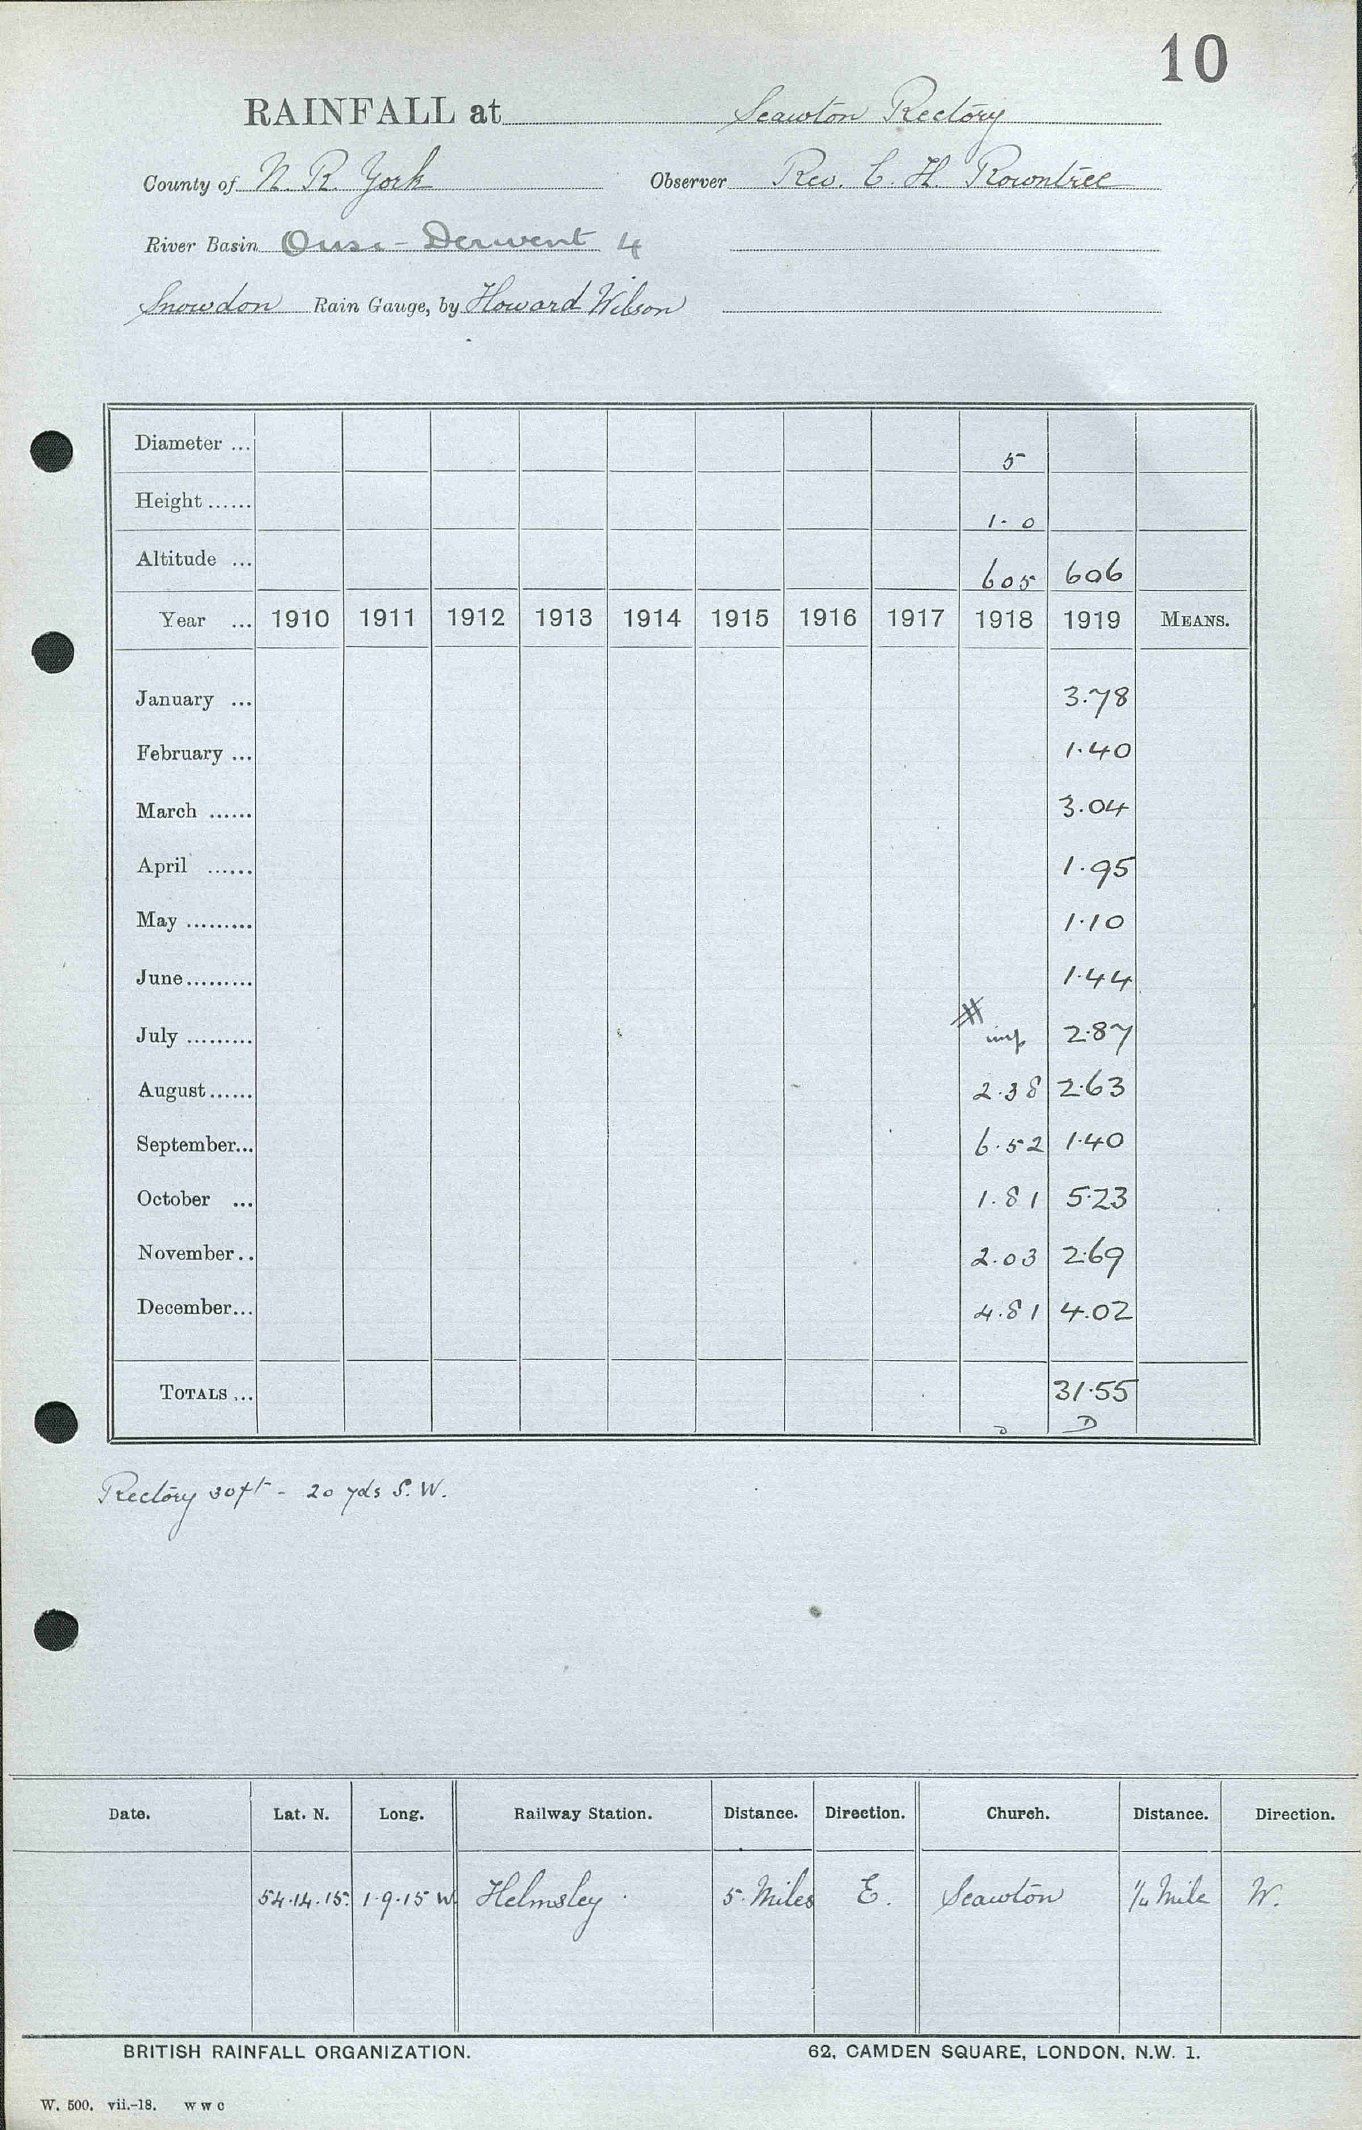 10
RAINFALL at Scawton Rectory
County of N. R. York Observer Rev. C. H. Rowntree
River Basin Ouse - Derwent 4
Snowdon Rain Gauge, by Howard Wilson
Diameter ... 5
Height ...... 1-0
Altitude ... 605 606
Year ... 1910 1911 1912 1913 1914 1915 1916 1917 1918 1919 MEANS.
January ... 3.78
February ... 1.40
March ...... 3.04
April ...... 1.95
May ......... 1.10
June ......... 1.44
July ......... # imp 2.87
August ...... 2.38 2.63
September... 6.52 1.40
October ... 1.81 5.23
November.. 2.03 2.69
December... 4.81 4.02
TOTALS ... 31.55
D D
Rectory 30ft - 20 yds S.W.
Date. Lat. N. Long. Railway Station. Distance. Direction. Church. Distance. Direction.
54.14.15. 1.9.15 W Helmsley 5 Miles E. Scawton 1/4 Mile W.
BRITISH RAINFALL ORGANIZATION. 62, CAMDEN SQUARE, LONDON, N.W. 1.
W. 500. vii.-18. W W C